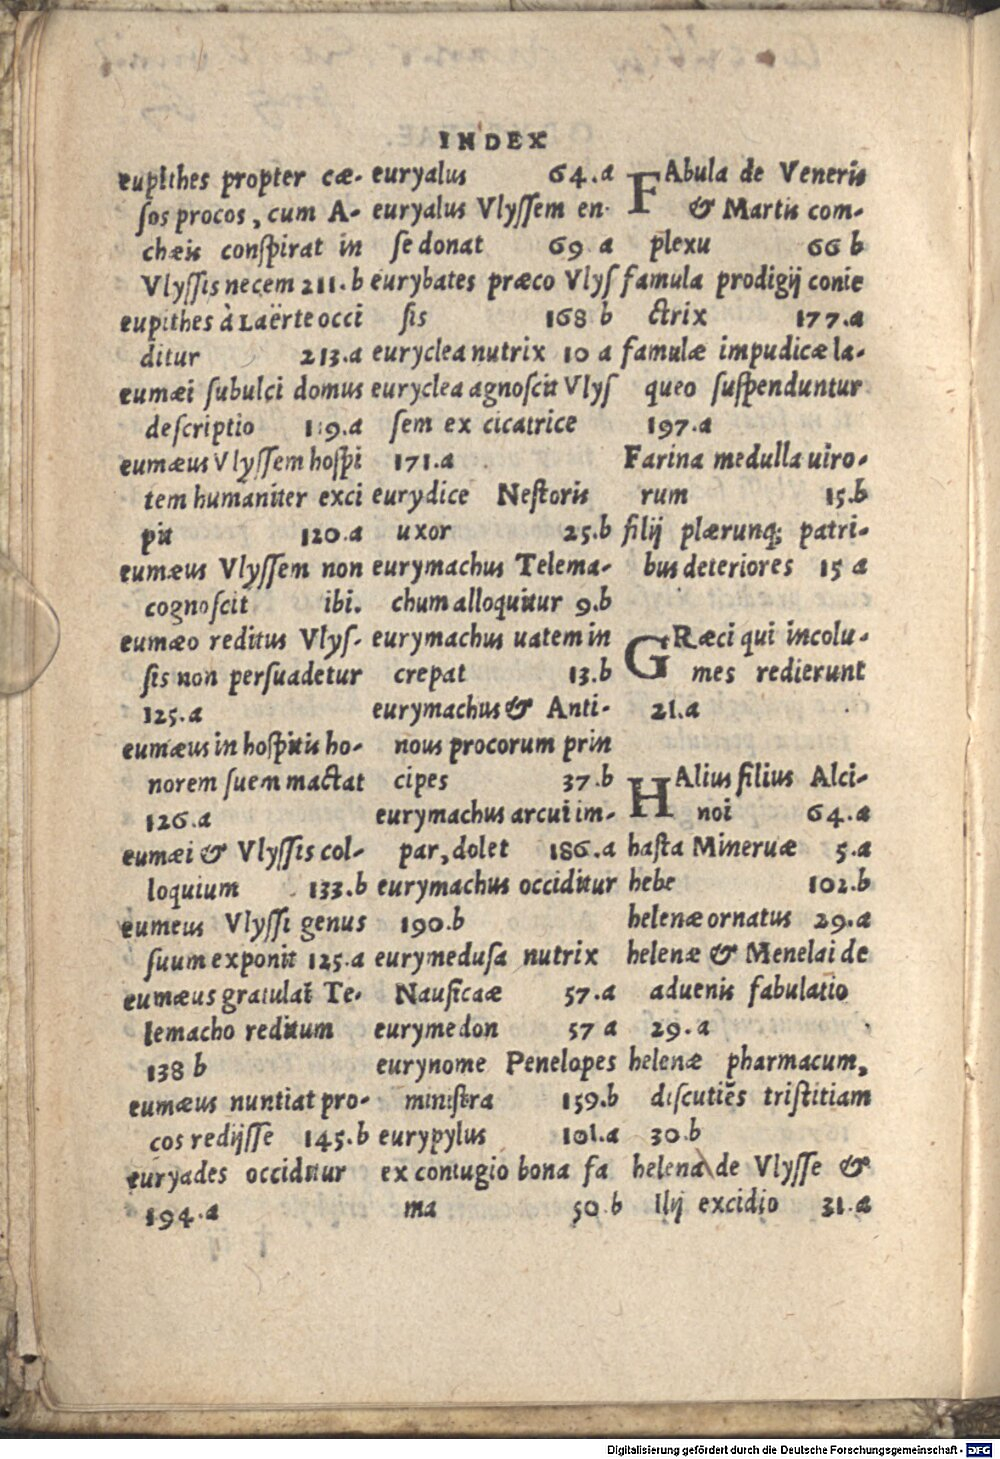 INDEX
eupithes propter cæ-
sos procos, cum A-
chæis conspirat in
Vlyssis necem 211.b
eupithes à Laërte occi
ditur 213.a
eumæi subulci domus
descriptio 119.a
eumæus Vlyssem hospi
tem humaniter exci
pit 120.a
eumæus Vlyssem non
cognoscit ibi.
eumæo reditus Vlys-
sis non persuadetur
125.a
eumæus in hospitis ho-
norem suem mactat
126.a
eumæi & Vlyssis col-
loquium 133.b
eumeus Vlyssi genus
suum exponit 125.a
eumæus gratulat̄ Te-
lemacho reditum
138 b
eumæus nuntiat pro-
cos redijsse 145.b
euryades occiditur
194.a
euryalus 64.a
euryalus Vlyssem en-
se donat 69 a
eurybates præco Vlys
sis 168 b
euryclea nutrix 10 a
euryclea agnoscit Vlys
sem ex cicatrice
171.a
eurydice Nestoris
uxor 25.b
eurymachus Telema-
chum alloquitur 9.b
eurymachus uatem in
crepat 13.b
eurymachus & Anti-
nous procorum prin
cipes 37.b
eurymachus arcui im-
par, dolet 186.a
eurymachus occiditur
190.b
eurymedusa nutrix
Nausicaæ 57.a
eurymedon 57 a
eurynome Penelopes
ministra 159.b
eurypylus 101.a
ex contugio bona fa
ma 50.b
FAbula de Veneris
& Martis com-
plexu 66 b
famula prodigij conie
ctrix 177.a
famulæ impudicæ la-
queo suspenduntur
197.a
Farina medulla uiro-
rum 15.b
filij plærunq; patri-
bus deteriores 15 a
GRæci qui incolu-
mes redierunt
21.a
HAlius filius Alci-
noi 64.a
hasta Mineruæ 5.a
hebe 102.b
helenæ ornatus 29.a
helenæ & Menelai de
aduenis fabulatio
29.a
helenæ pharmacum,
discutiēs tristitiam
30.b
helena de Vlysse &
Ilij excidio 31.a
Digitalisierung gefördert durch die Deutsche Forschungsgemeinschaft - DFG